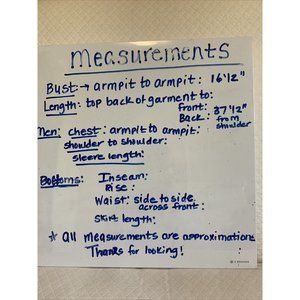 Measurements
Bust: → armpit to armpit: 16 1/2"
Length: top back of garment to:
Front: 37 1/2"
Back: from shoulder
Men: chest: armpit to armpit:
shoulder to shoulder:
sleeve length:
Bottoms: Inseam:
Rise:
Waist: side to side
across front:
Skirt length:
* all measurements are approximations
Thanks for looking!